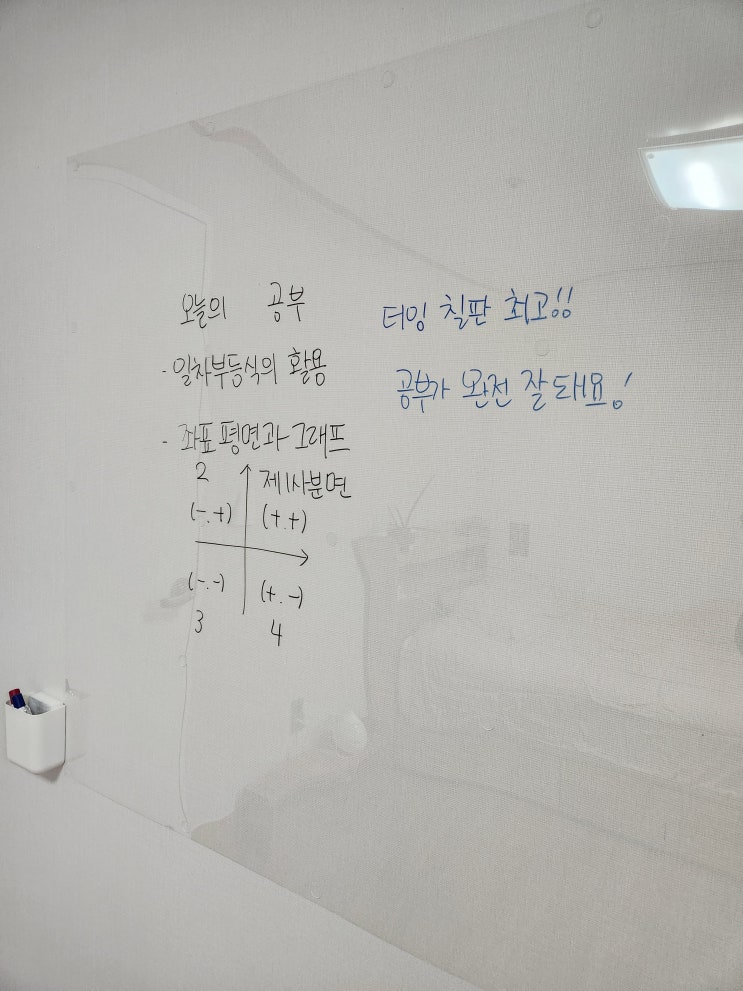 오늘의 공부
- 일차부등식의 활용
- 좌표평면과 그래프
2 제1사분면
(-.+) (+.+)
(-.-) (+.-)
3 4
터잉 칠판 최고!!
공부가 완전 잘 돼요!